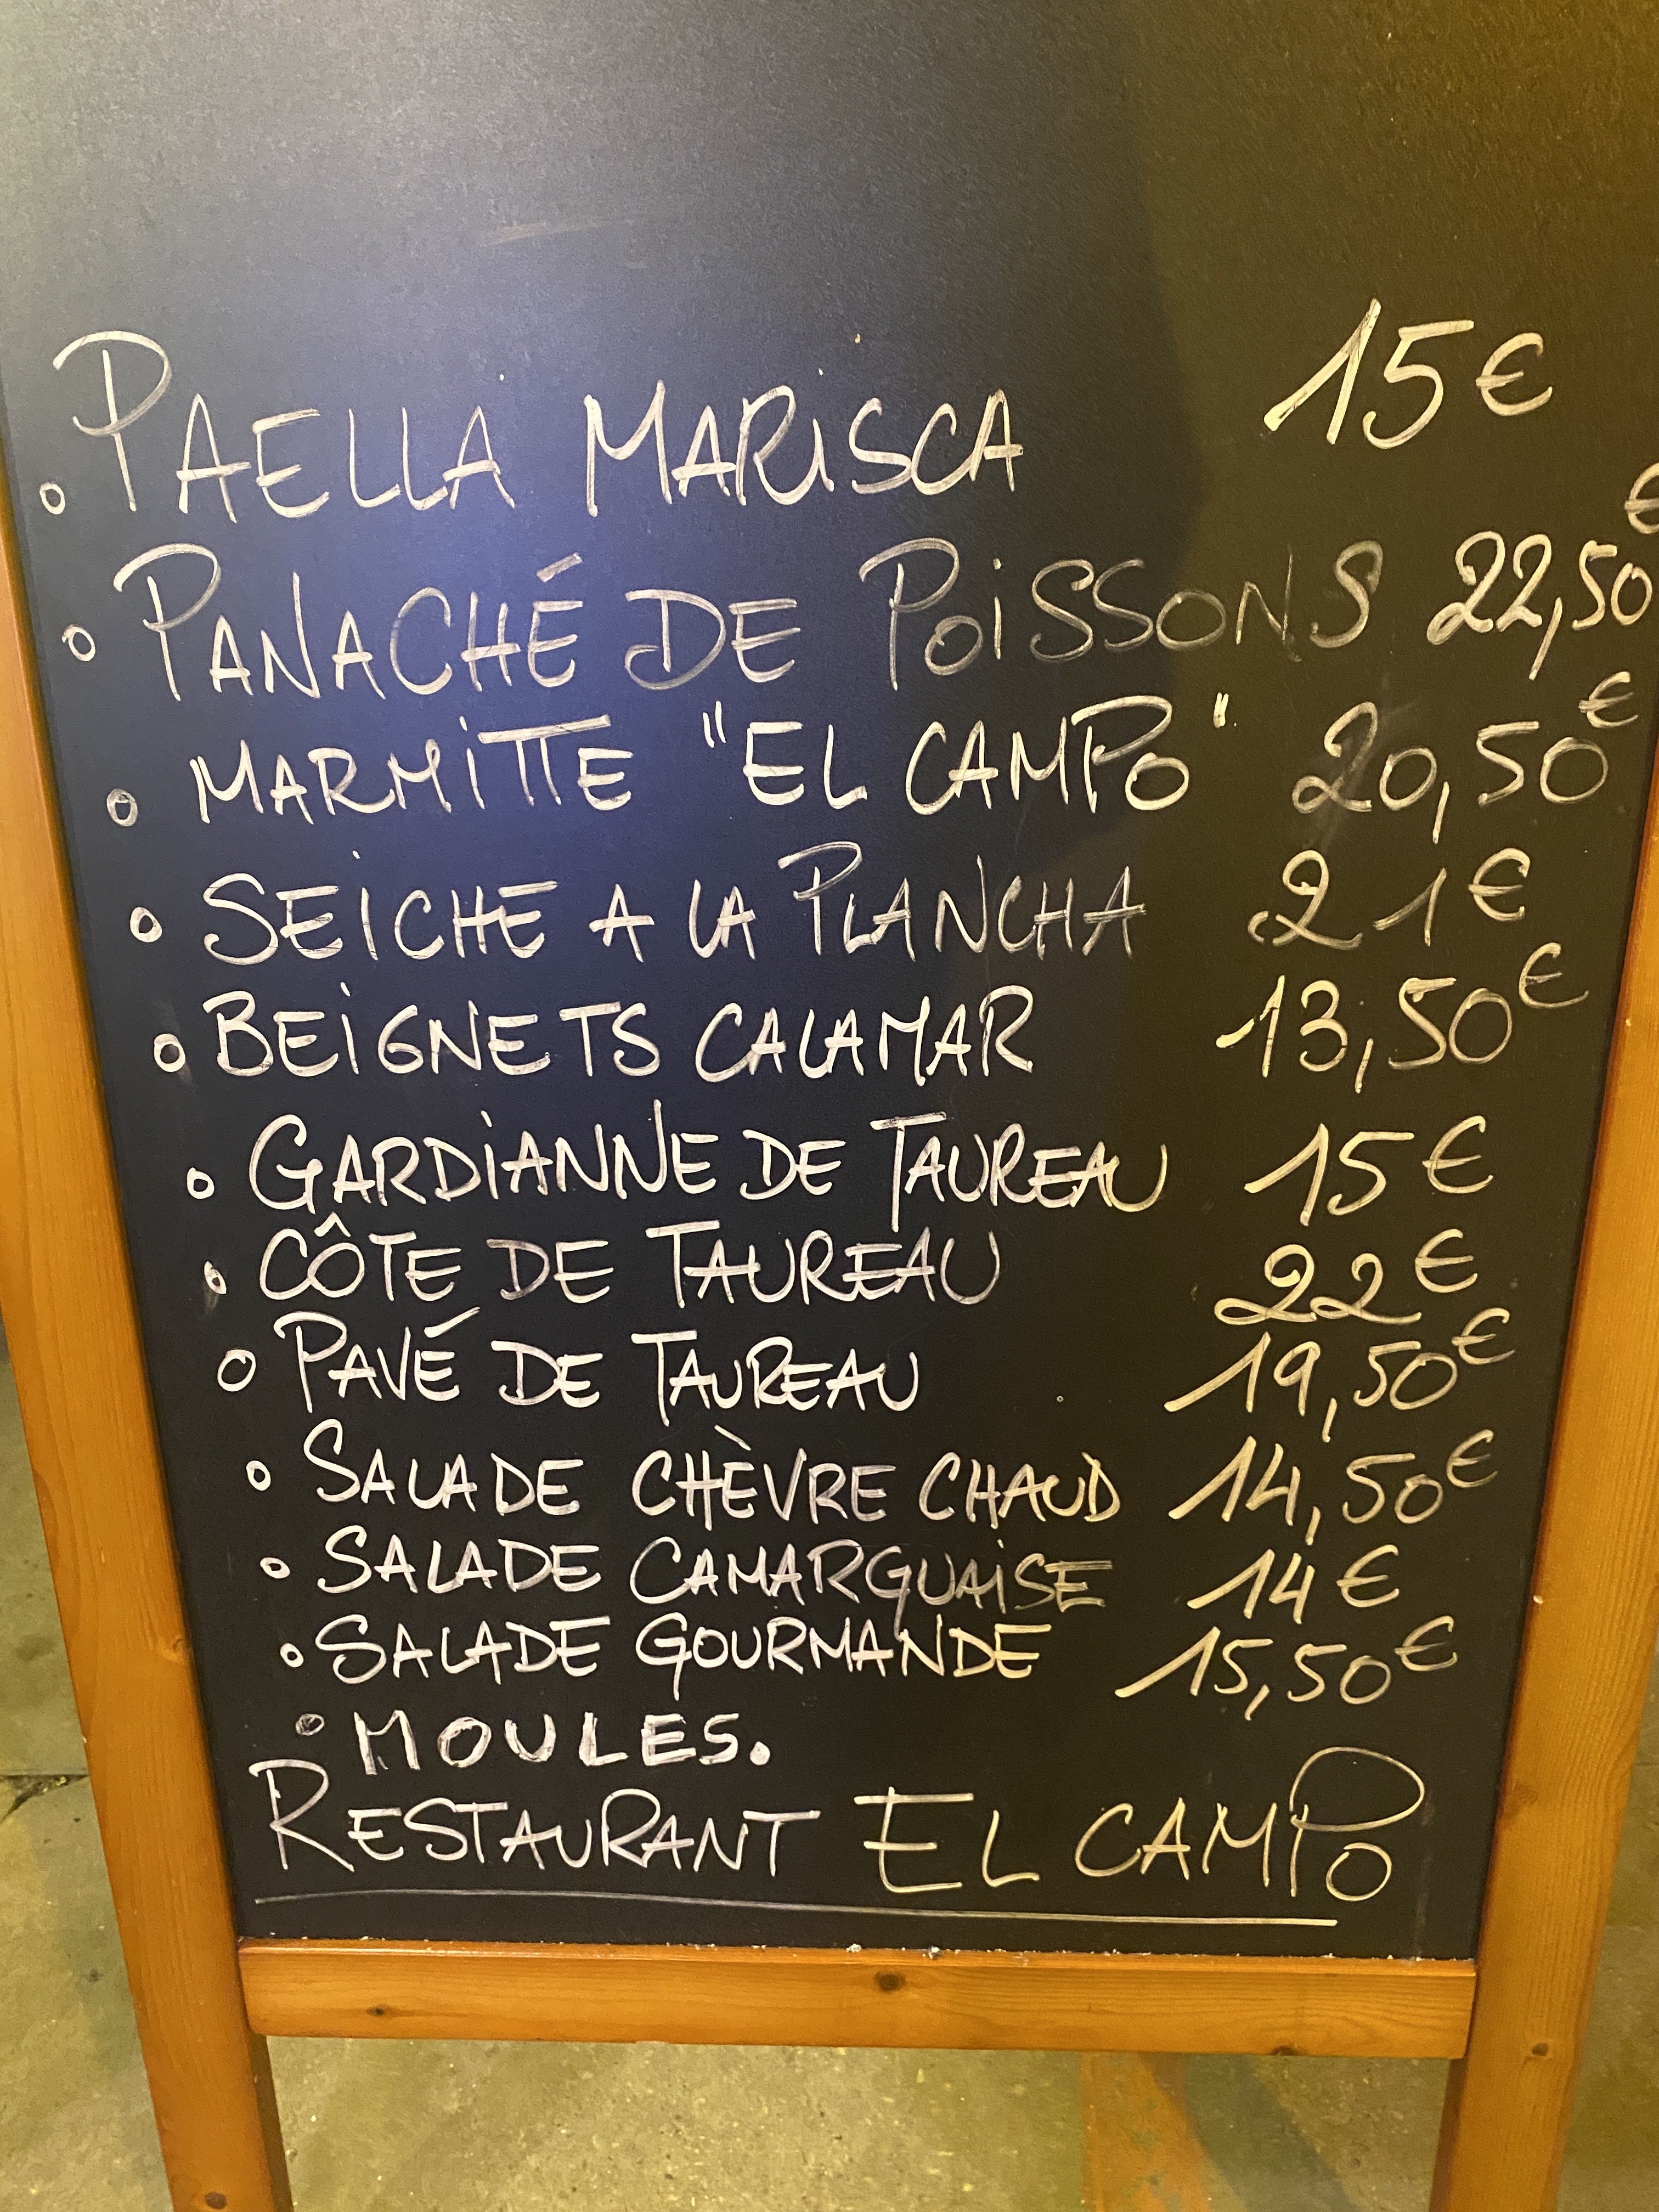 ° PAELLA MARiSCA 15 €
° PANACHÉ DE POiSSONS 22,50 €
° MARMiTTE "EL CAMPO" 20,50 €
° SEiCHE A LA PLANCHA 21 €
° BEiGNETS CALAMAR 13,50 €
° GARDiANNE DE TAUREAU 15 €
° CÔTE DE TAUREAU 22 €
° PAVÉ DE TAUREAU 19,50 €
° SALADE CHÈVRE CHAUD 14,50 €
° SALADE CAMARGUAiSE 14 €
° SALADE GOURMANDE 15,50 €
° MOULES.
RESTAURANT EL CAMPO